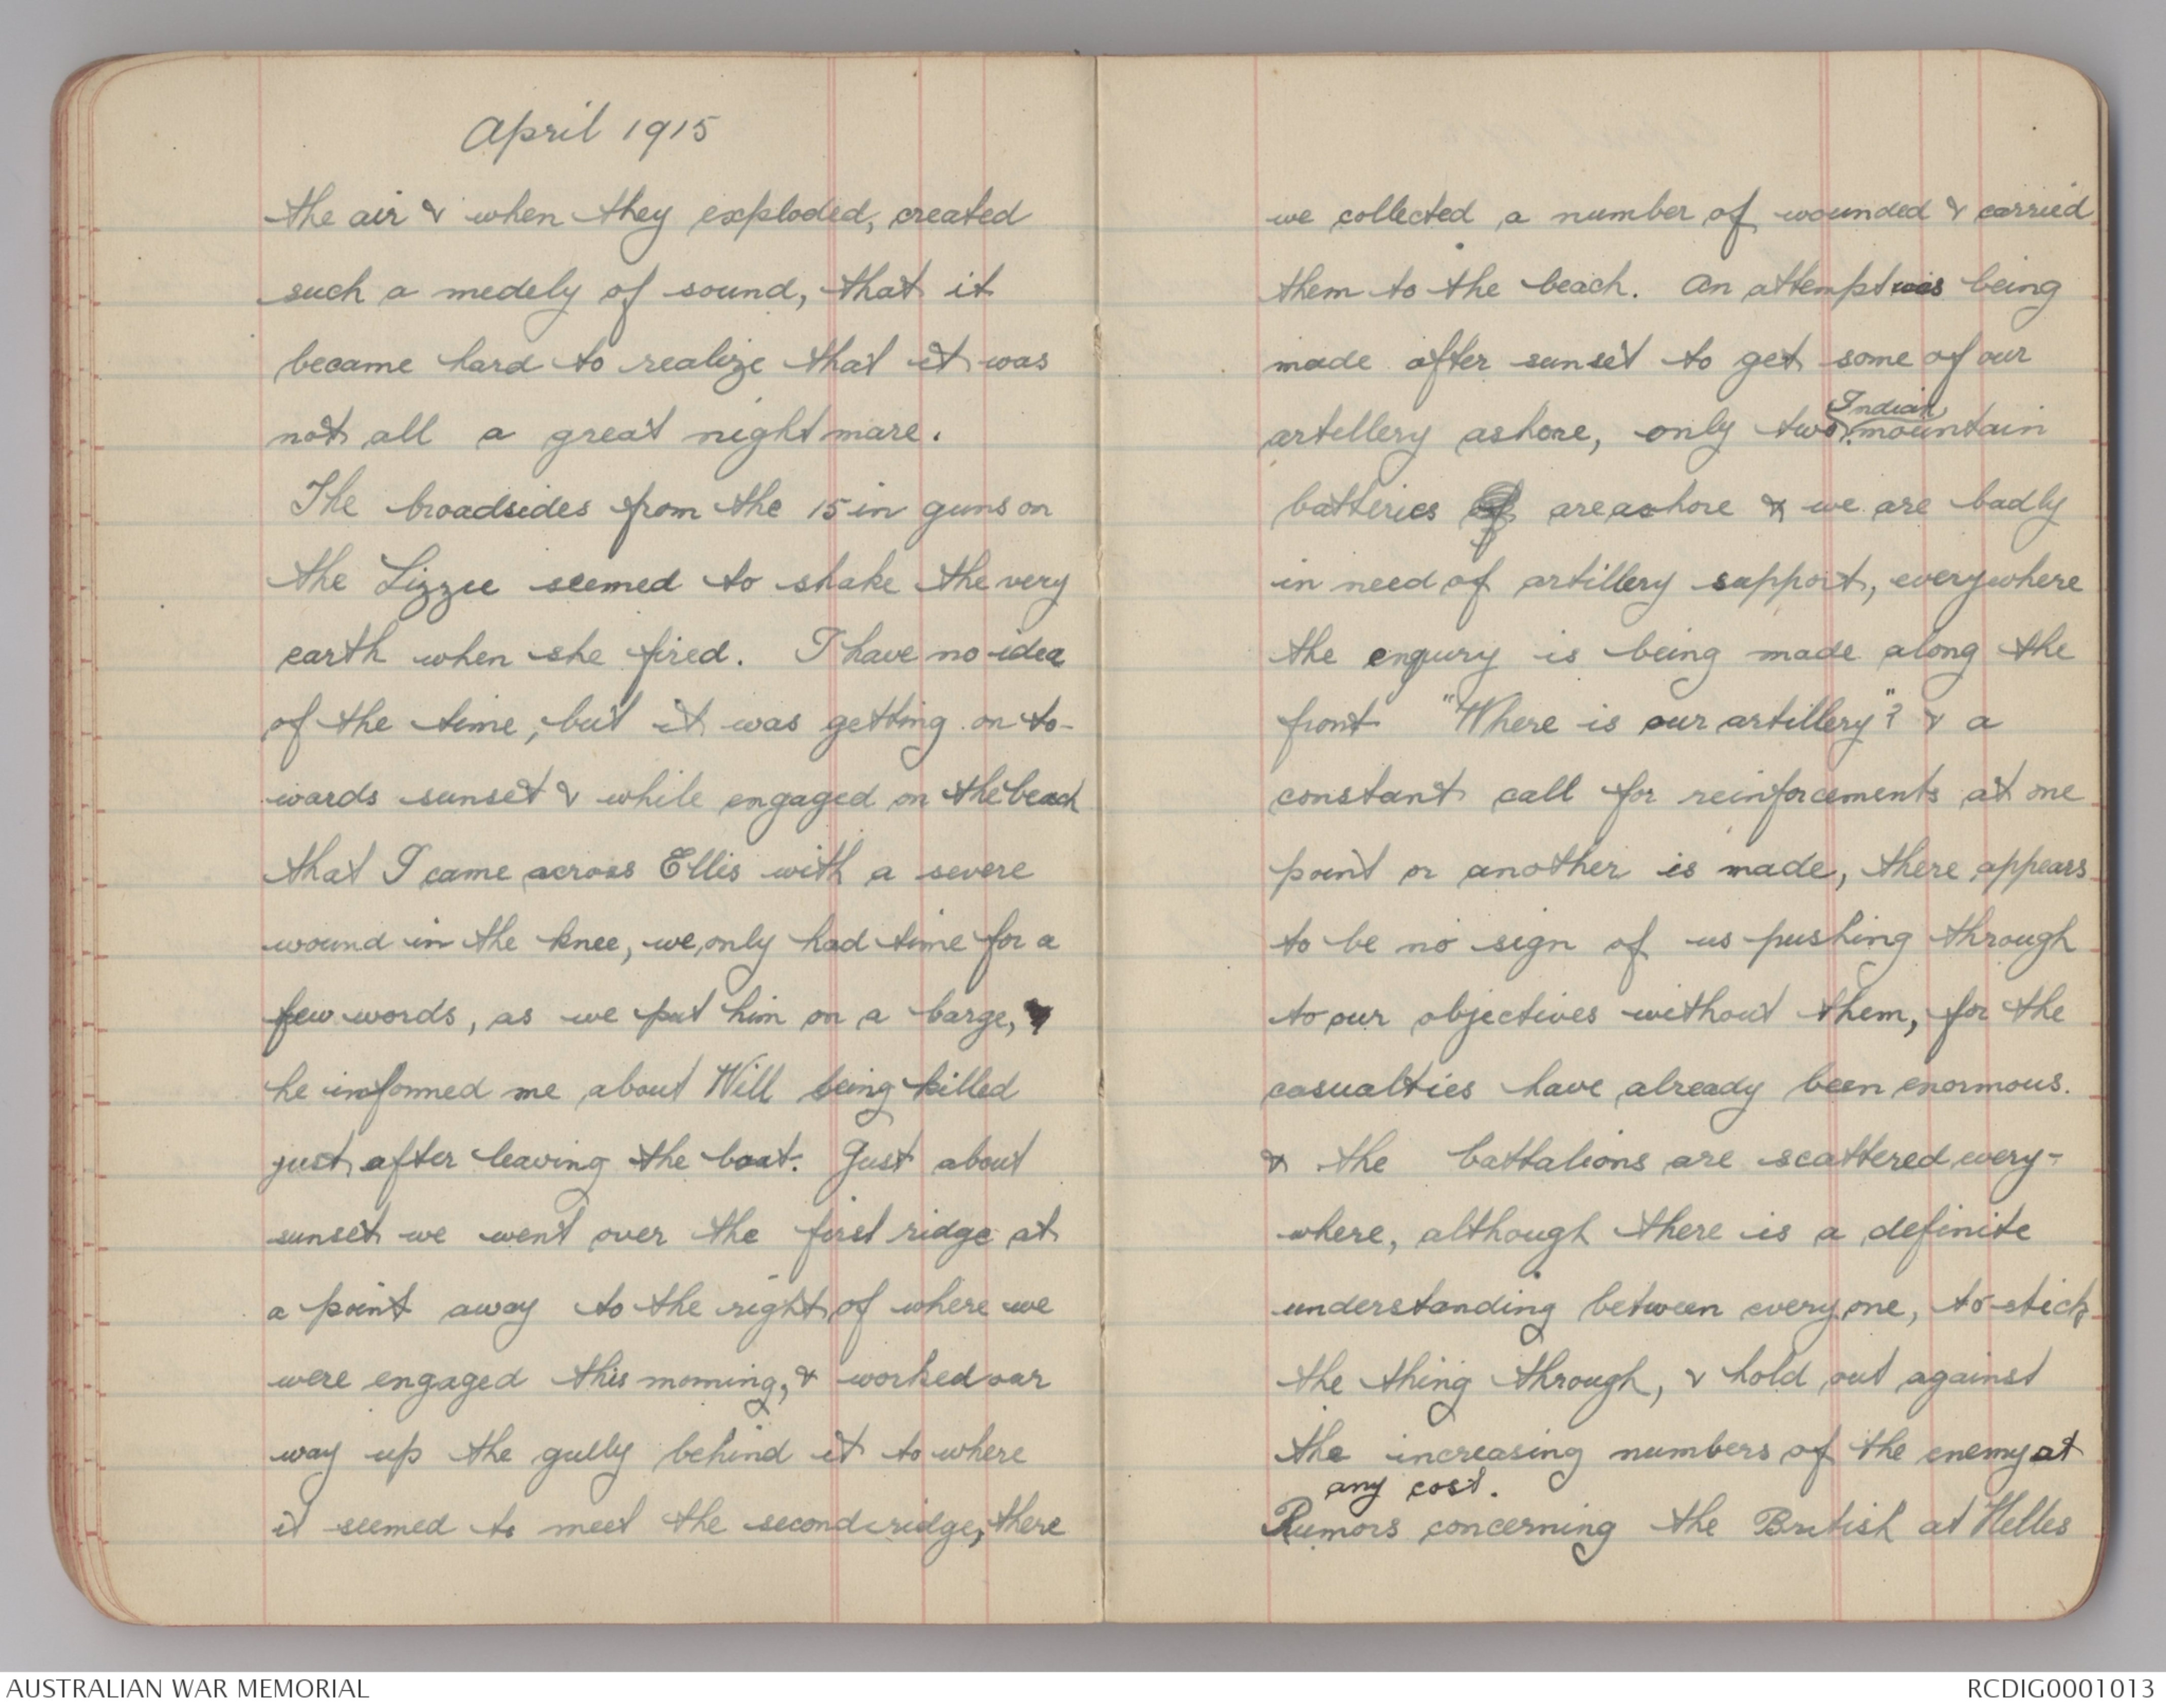 April 1915
the air & when they exploded, created
such a medely of sound, that it
became hard to realize that it was
not all a great nightmare.
The broadsides from the 15 in guns on
the Lizzie seemed to shake the very
earth when she fired. I have no idea
of the time, but it was getting on to-
wards sunset & while engaged on the beach
that I came across Ellis with a severe
wound in the knee, we only had time for a
few words, as we put him on a barge,
he informed me about Will being killed
just after leaving the boat. Just about
sunset we went over the first ridge at
a point away to the right of where we
were engaged this morning, & worked our
way up the gully behind it to where
it seemed to meet the second ridge, there
we collected a number of wounded & carried
them to the beach. An attempt was being
made after sunset to get some of our
artillery ashore, only two Indian mountain
batteries are ashore & we are badly
in need of artillery support, everywhere
the enqury is being made along the
front "Where is our artillery"? & a
constant call for reinforcements at one
point or another is made, there appears
to be no sign of us pushing through
to our objectives without them, for the
casualties have already been enormous.
& the battalions are scattered every-
where, although there is a definite
understanding between everyone, to stick
the thing through, & hold out against
the increasing numbers of the enemy at
any cost.
Rumors concerning the British at Helles
AUSTRALIAN WAR MEMORIAL
RCDIG0001013